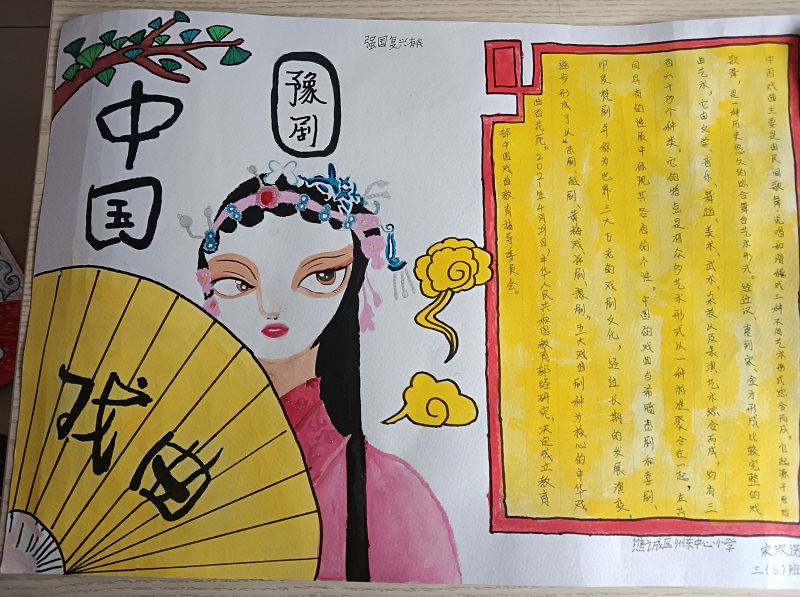 强国复兴有我
中国
豫剧
戏曲
中国戏曲主要是由民间歌舞、说唱和滑稽戏三种不同艺术形式综合而成。它起源于原始
歌舞，是一种历史悠久的综合舞台艺术形式。经过汉、唐到宋、金才形成比较完整的戏
曲艺术，它由文学、音乐、舞蹈、美术、武术、杂技以及表演艺术综合而成，约有三
百六十多个种类。它的特点是将众多艺术形式以一种标准聚合在一起，在共
同具有的性质中体现其各自的个性。中国的戏曲与希腊悲剧和喜剧、
印度梵剧并称为世界三大古老的戏剧文化，经过长期的发展演变，
逐步形成了以“京剧、越剧、黄梅戏、评剧、豫剧”五大戏曲剧种为核心的中华戏
曲百花苑。2021年4月21日，中华人民共和国教育部经研究，决定成立教育
部中国戏曲教育指导委员会。
谯城区州东中心小学
宋欣
三(6)班